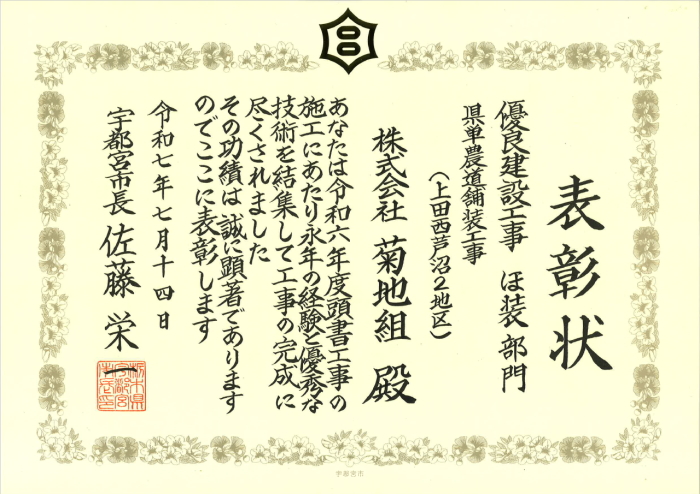 表彰状
優良建設工事 ほ装部門
県単農道舗装工事
（上田西芦沼２地区）
株式会社 菊地組 殿
あなたは令和六年度頭書工事の
施工にあたり永年の経験と優秀な
技術を結集して工事の完成に
尽くされました
その功績は誠に顕著であります
のでここに表彰します
令和七年七月十四日
宇都宮市長 佐藤栄一
宇都宮市